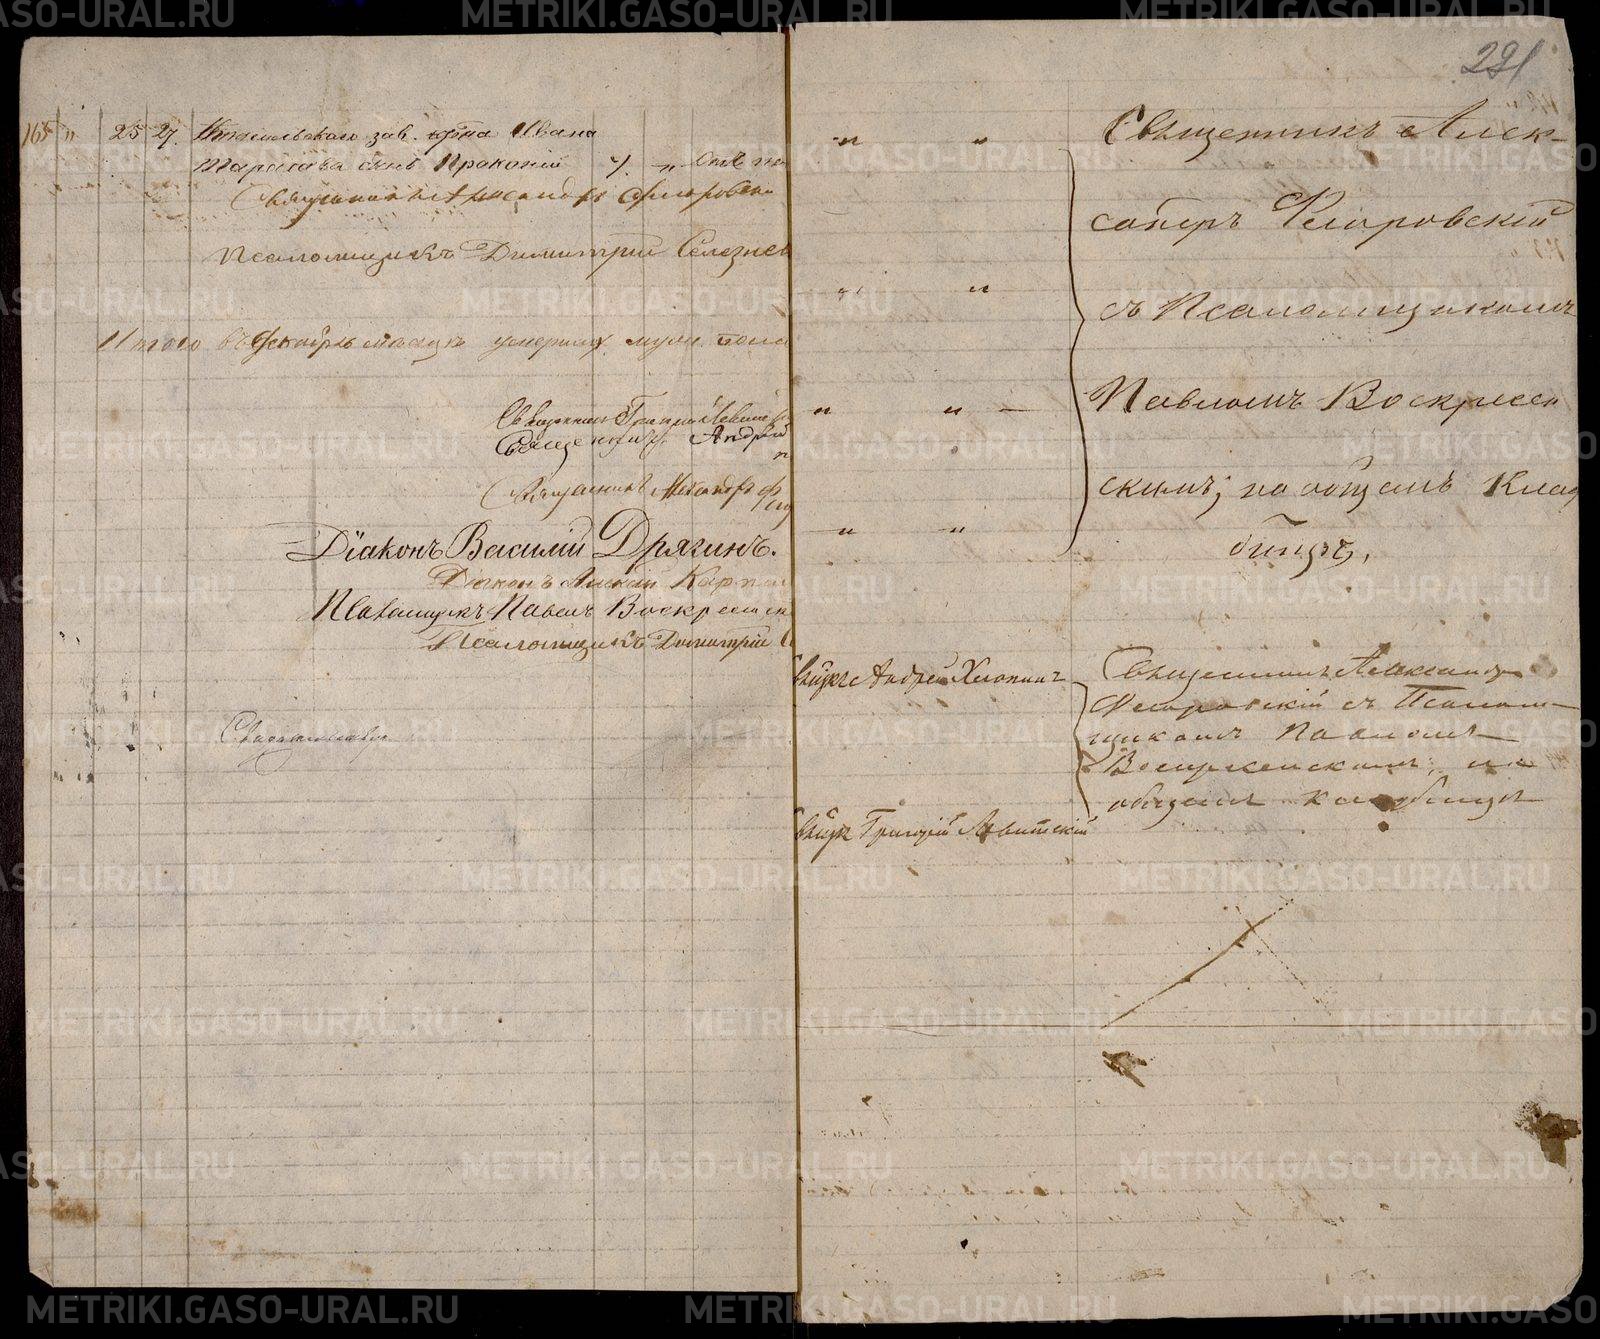 165 " 25 27. Нтагильскаго зав. крта Ивана
Тарасова сынъ Прокопій ½ " Отъ по
Священникъ Александръ Флоровскі
Псаломщикъ Димитрій Селезнев
Итого въ Декабрѣ месяцѣ умершихъ муж. пола
Священникъ Григорій Левитск
Священникъ Андрей
Священникъ Александръ Ф
Діаконъ Василій Дрягинъ.
Діаконъ Алексій Карп
Псаломщикъ Павелъ Воскресенск
Псаломщикъ Димитрій С
291
" "
Священникъ Алек-
сандръ Флоровскій
" "
съ Псаломщикомъ
" " —
Павломъ Воскресен
скимъ; на общемъ Клад
" "
бищѣ,
Свщнкъ Андрей Хлопинъ
Священникъ Александръ
Флоровскій съ Псалом-
щикомъ Павломъ
Воскресенскимъ, на
общемъ кладбищѣ
Свщнкъ Григорій Левитскій
METRIKI.GASO-URAL.RU